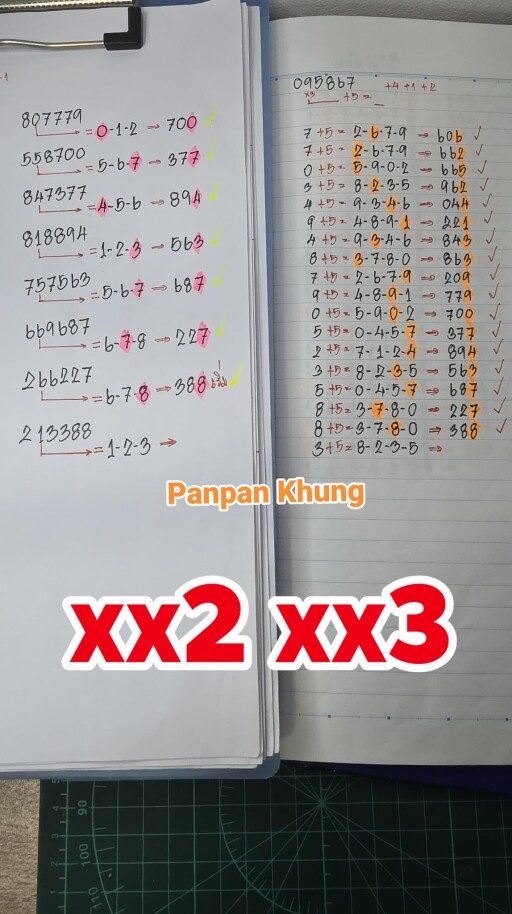 807779
= 0-1-2 → 700 ✓
558700
= 5-6-7 → 377 ✓
847377
= 4-5-6 → 894 ✓
818894
= 1-2-3 → 563 ✓
757563
= 5-6-7 → 687 ✓
669687
= 6-7-8 → 227 ✓
266227
= 6-7-8 → 388 ✓
213388
= 1-2-3 →
095867 +4 +1 +2
x3 +5 = _
7 +5 = 2-6-7-9 → 606 ✓
7 +5 = 2-6-7-9 → 662 ✓
0 +5 = 5-9-0-2 → 665 ✓
3 +5 = 8-2-3-5 → 962 ✓
4 +5 = 9-3-4-6 → 044 ✓
9 +5 = 4-8-9-1 → 221 ✓
4 +5 = 9-3-4-6 → 843 ✓
8 +5 = 3-7-8-0 → 863 ✓
7 +5 = 2-6-7-9 → 209 ✓
9 +5 = 4-8-9-1 → 779 ✓
0 +5 = 5-9-0-2 → 700 ✓
5 +5 = 0-4-5-7 → 377 ✓
2 +5 = 7-1-2-4 → 894 ✓
3 +5 = 8-2-3-5 → 563 ✓
5 +5 = 0-4-5-7 → 687 ✓
8 +5 = 3-7-8-0 → 227 ✓
8 +5 = 3-7-8-0 → 388 ✓
3 +5 = 8-2-3-5 →
Panpan Khung
xx2 xx3